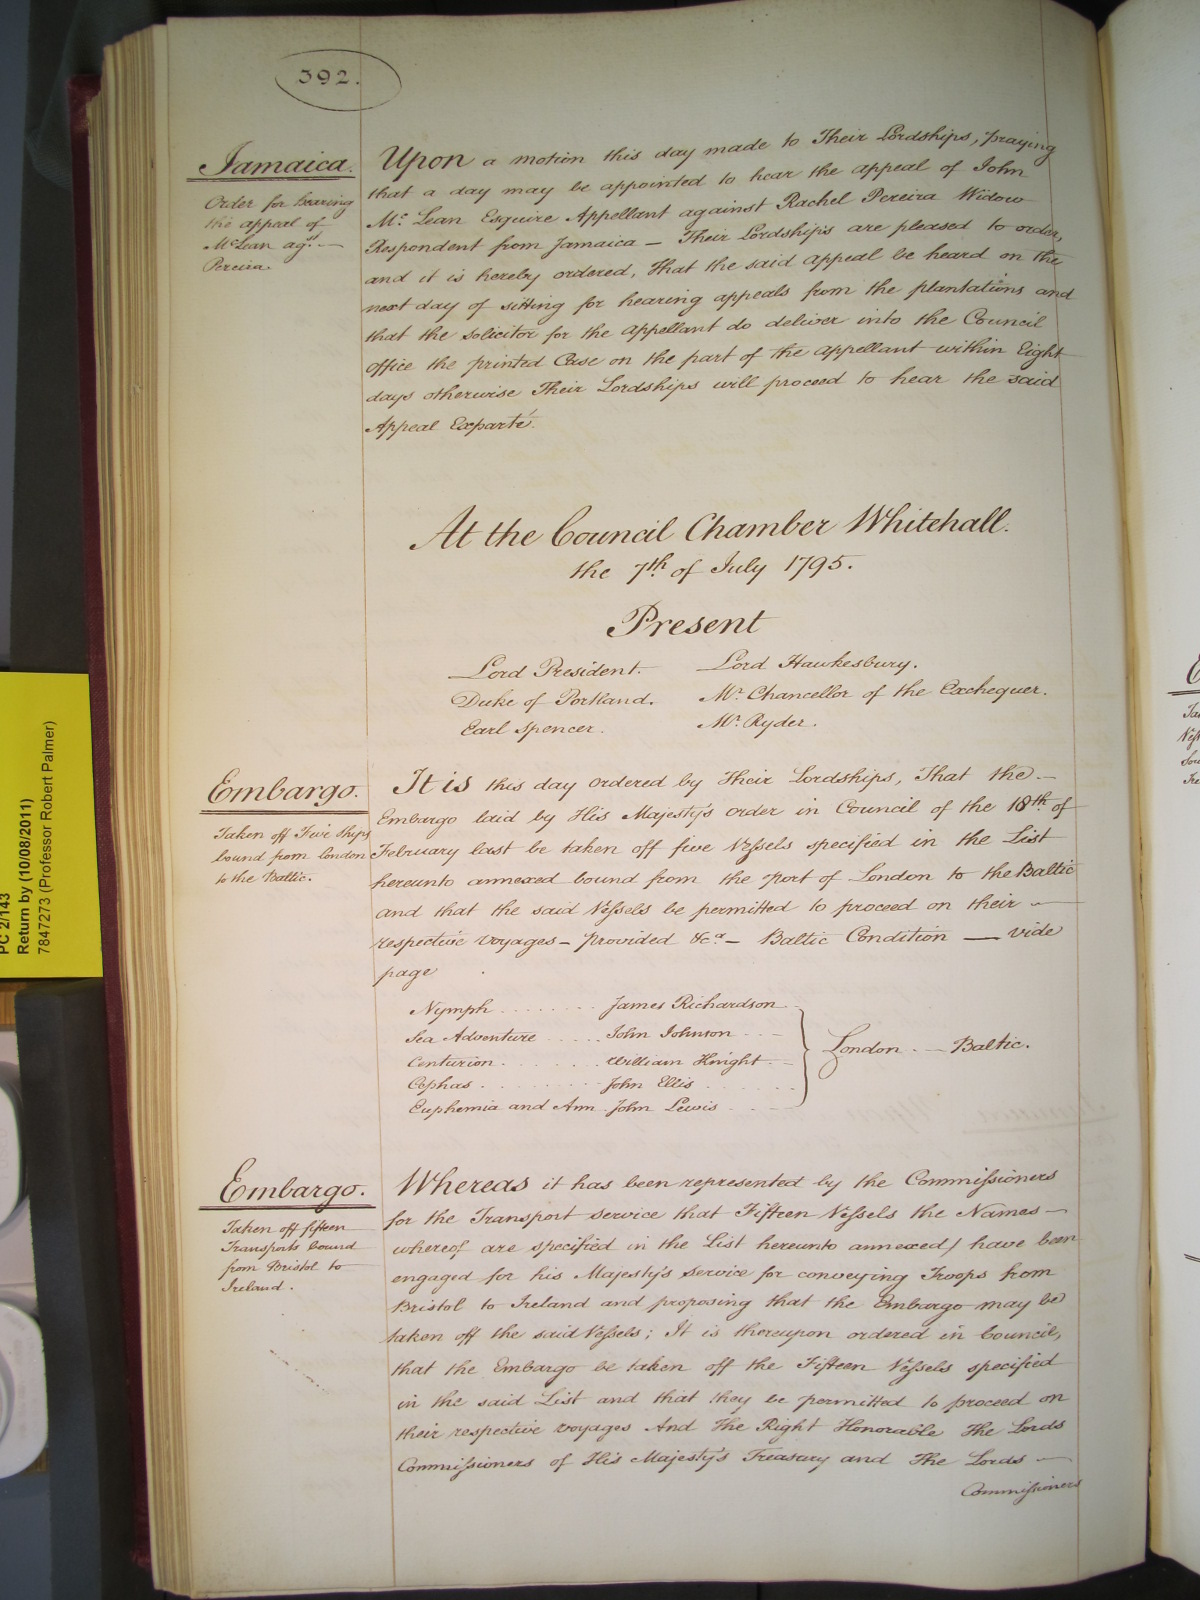 392.
Jamaica.
Order for hearing
the appeal of
McLean agst. —
Pereira.
Upon a motion this day made to Their Lordships, praying
that a day may be appointed to hear the appeal of John
Mc. Lean Esquire Appellant against Rachel Pereira Widow
Respondent from Jamaica — Their Lordships are pleased to order,
and it is hereby ordered, That the said appeal be heard on the
next day of sitting for hearing appeals from the plantations and
that the solicitor for the appellant do deliver into the Council
office the printed Case on the part of the appellant within Eight
days otherwise Their Lordships will proceed to hear the said
Appeal Exparté.
At the Council Chamber Whitehall.
the 7th of July 1795.
Present
Lord President. Lord Hawkesbury.
Duke of Portland. Mr. Chancellor of the Exchequer.
Earl Spencer. Mr. Ryder.
Embargo.
Taken off Five Ships
bound from London
to the Baltic.
It is this day ordered by Their Lordships, That the —
Embargo laid by His Majesty's order in Council of the 18th of
February last be taken off five Vessels specified in the List
hereunto annexed bound from the port of London to the Baltic
and that the said Vessels be permitted to proceed on their —
respective voyages — provided &ca — Baltic Condition — vide
page
Nymph . . . . . . . James Richardson
Sea Adventure . . . . . John Johnson . . —
Centurion . . . . . . . William Knight —
Cephas . . . . . . . . . John Ellis . . . . . .
Euphemia and Ann John Lewis . . . —
London — Baltic.
Embargo.
Taken off fifteen
Transports bound
from Bristol to
Ireland.
Whereas it has been represented by the Commissioners
for the Transport service that Fifteen Vessels the Names —
whereof are specified in the List hereunto annexed) have been
engaged for his Majesty's Service for conveying Troops from
Bristol to Ireland and proposing that the Embargo may be
taken off the said Vessels; It is thereupon ordered in Council,
that the Embargo be taken off the Fifteen Vessels specified
in the said List and that they be permitted to proceed on
their respective voyages And The Right Honorable The Lords
Commissioners of His Majesty's Treasury and The Lords —
Commissioners
PC 2/143
Return by (10/08/2011)
7847273 (Professor Robert Palmer)